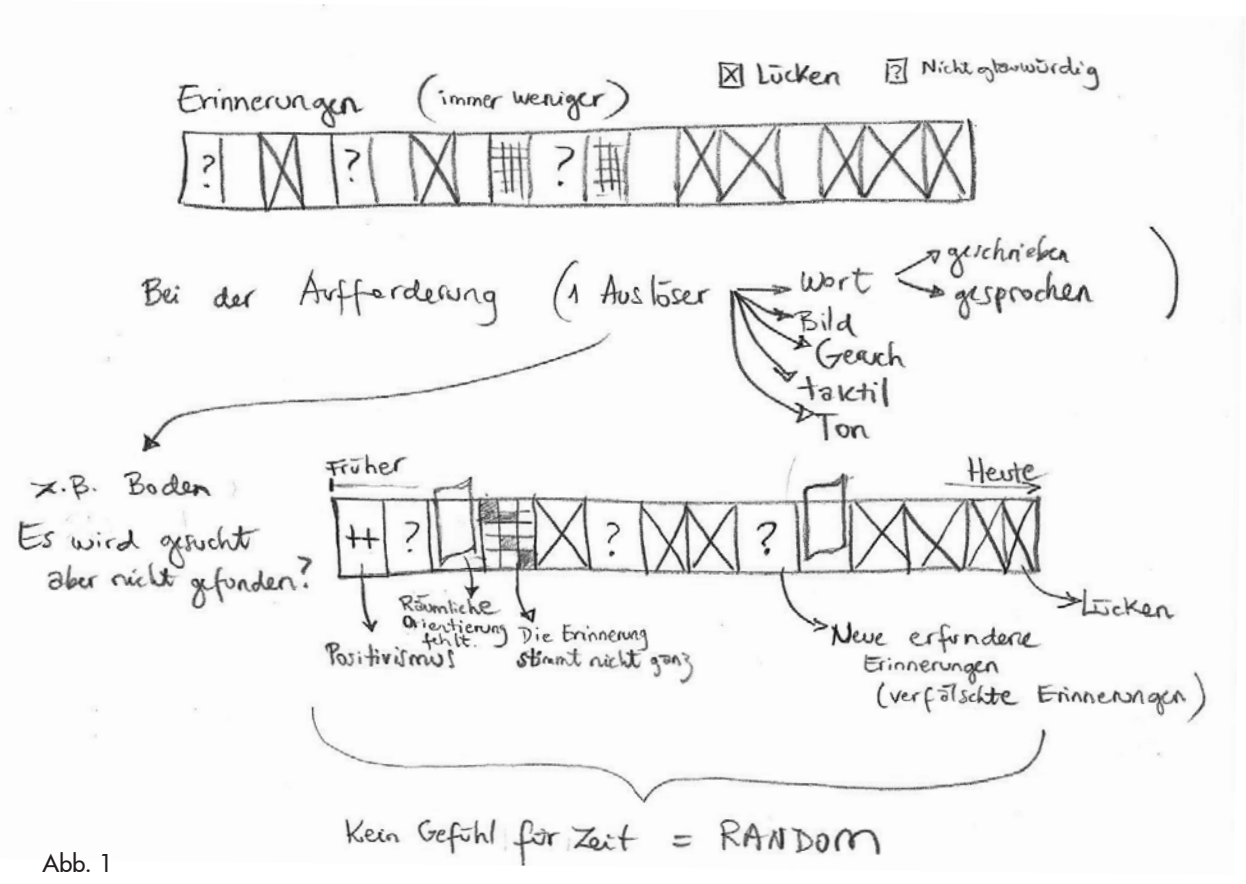 ☒ Lücken ? Nicht glauwürdig
Erinnerungen (immer weniger)
? ? ?
Bei der Aufforderung (1 Auslöser
Wort
geschrieben
gesprochen
)
Bild
Geruch
taktil
Ton
z.B. Boden
Es wird gesucht
aber nicht gefunden?
Früher
Heute
++ ? ? ?
Positivismus
Räumliche
Orientierung
fehlt.
Die Erinnerung
stimmt nicht ganz
Neue erfundene
Erinnerungen
(verfälschte Erinnerungen)
Lücken
Kein Gefühl für Zeit = RANDOM
Abb. 1